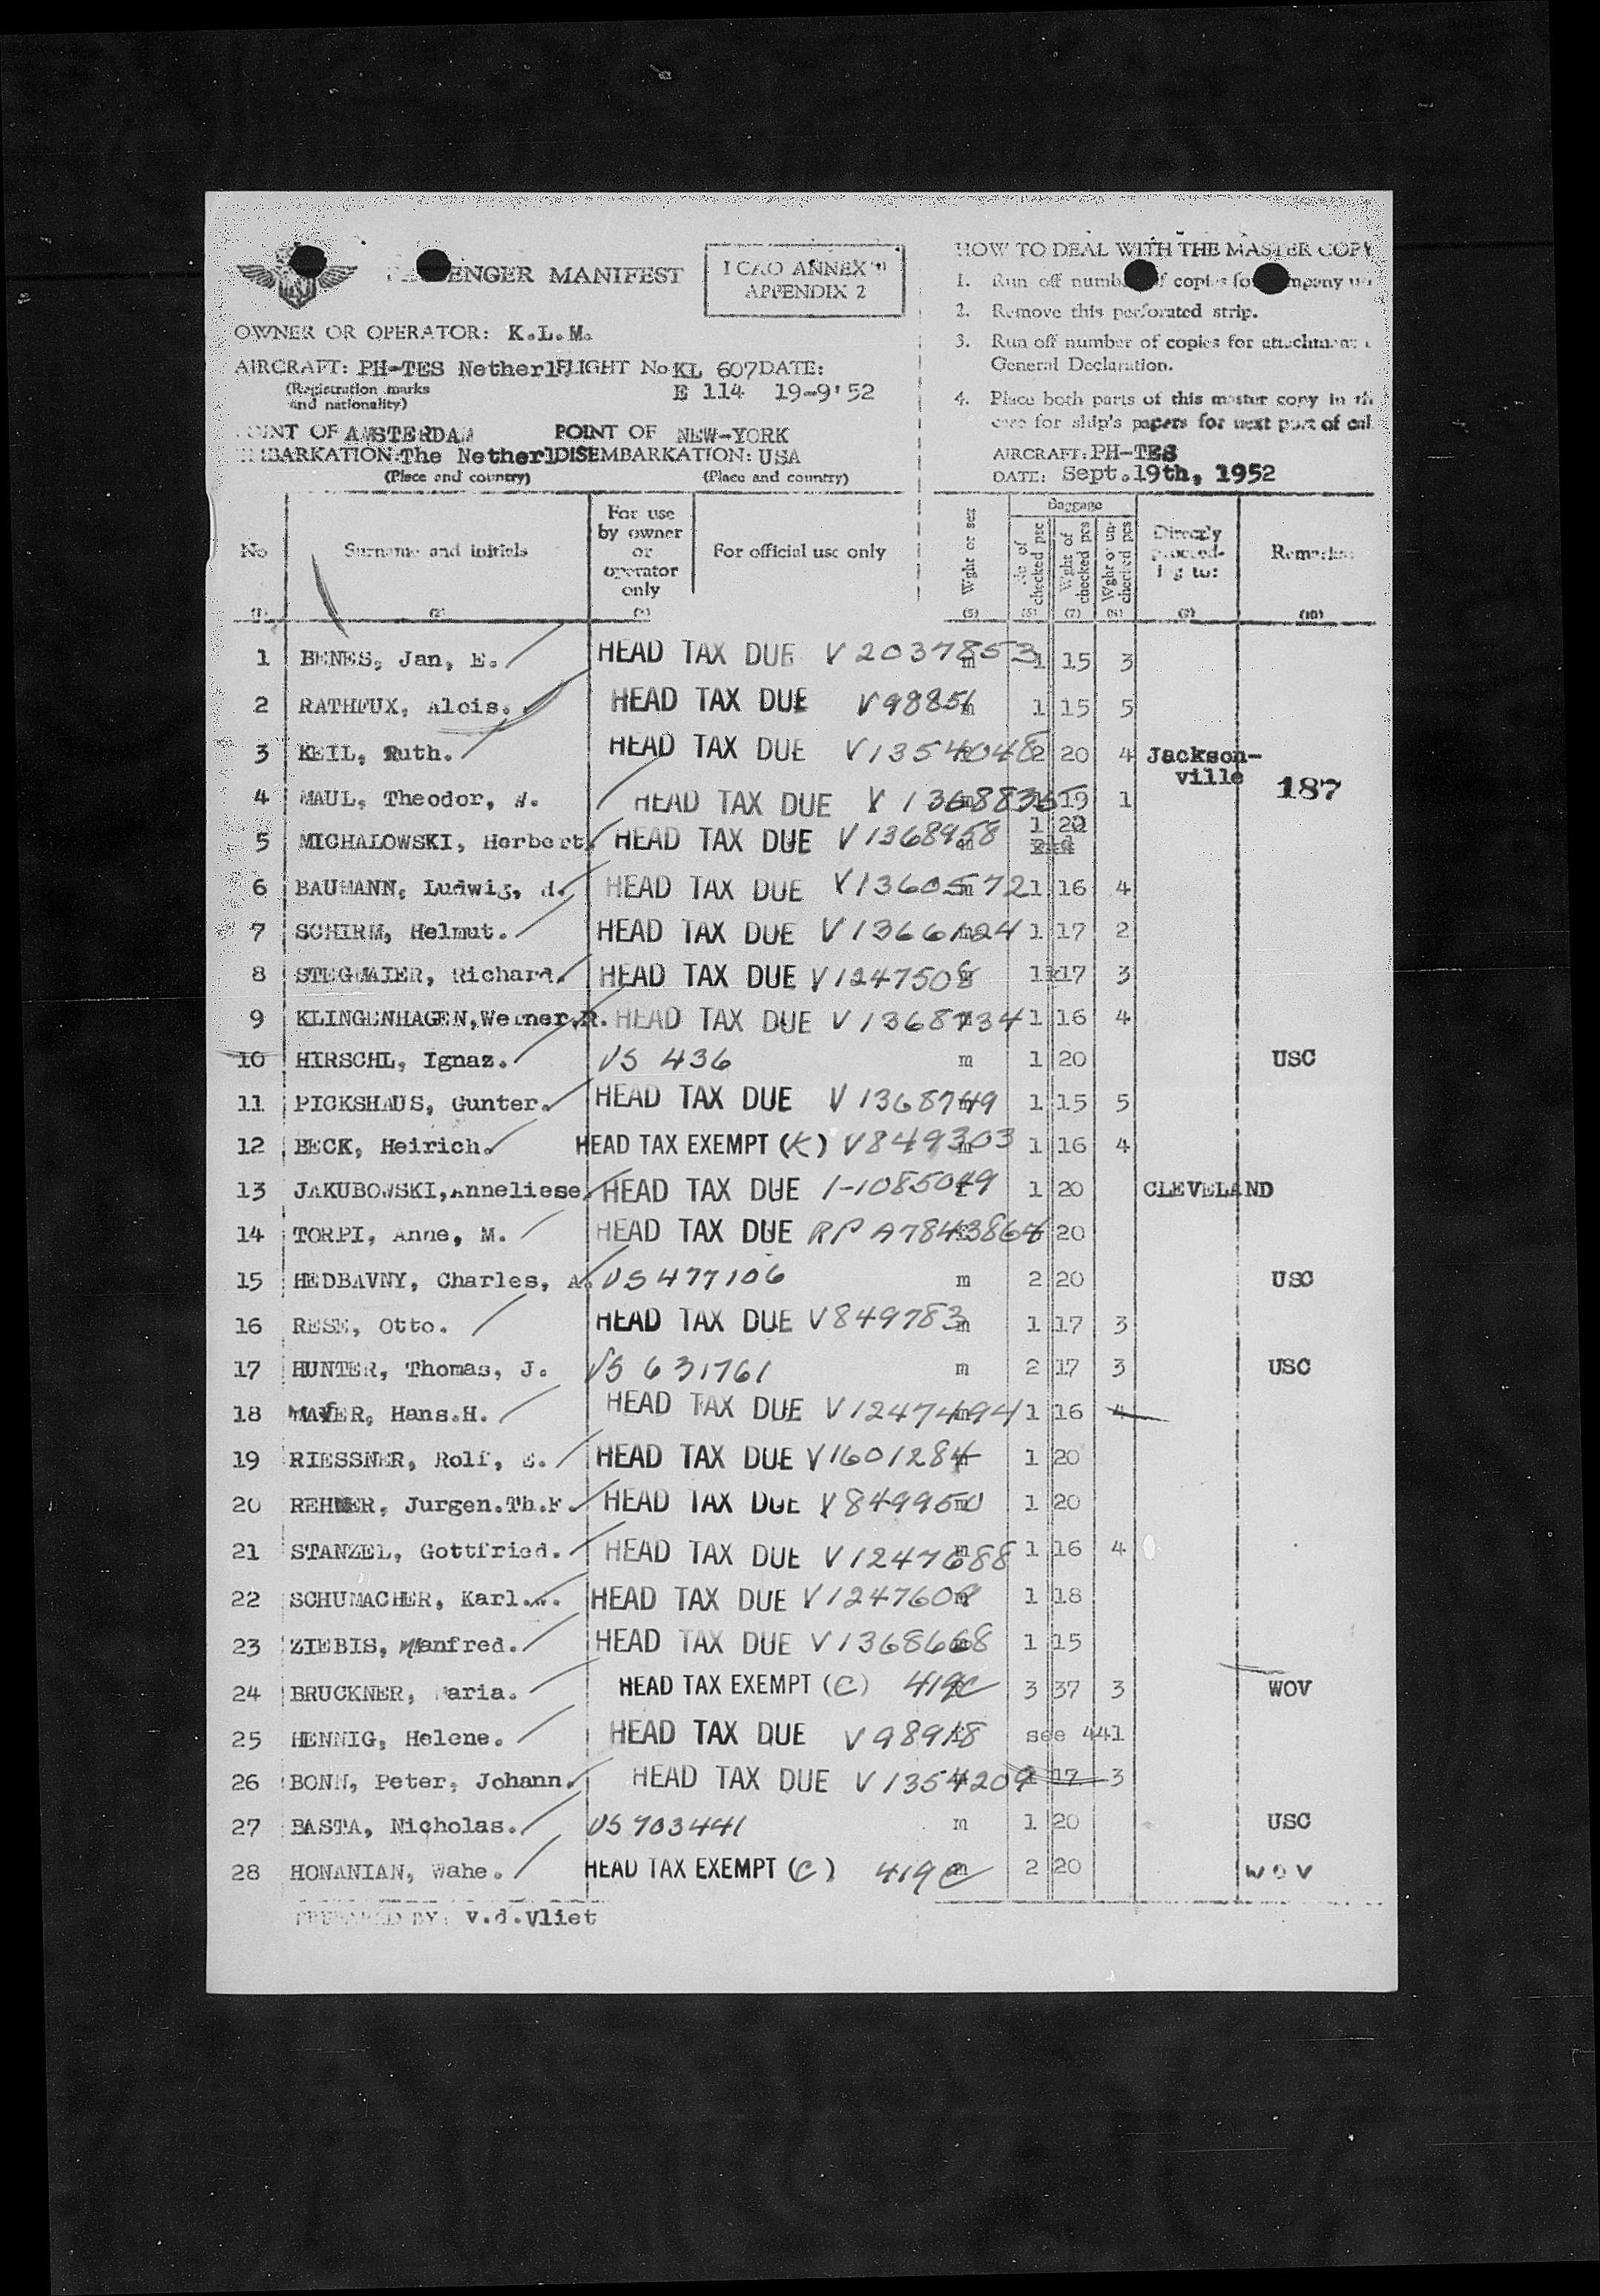 ENGER MANIFEST
ICAO ANNEX
APPENDIX 2
OWNER OR OPERATOR: K.L.M.
AIRCRAFT: PH-TES Netherl FLIGHT No KL 607 DATE:
(Registration marks
and nationality)
E 114 19-9'52
OINT OF AMSTERDAM POINT OF NEW-YORK
BARKATION: The Netherl DISEMBARKATION: USA
(Place and country) (Place and country)
HOW TO DEAL WITH THE MASTER COPY
1. Run off numb of copies fo mpany
2. Remove this perforated strip.
3. Run off number of copies for attachment
General Declaration.
4. Place both parts of this master copy in th
care for ship's papers for next port of cal
AIRCRAFT: PH-TES
DATE: Sept.19th, 1952
No Surname and initials For use by owner or operator only For official use only Wght or sex Baggage No of checked pcs Wght of checked pcs Wght of un-checked pcs Directly proceed-ing to: Remarks:
(1) (2) (3) (5) (6) (7) (8) (9) (10)
1 BENES, Jan, E. HEAD TAX DUE V 2037853 m 1 15 3
2 RATHFUX, Alois. HEAD TAX DUE V98851 m 1 15 5
3 KEIL, Ruth. HEAD TAX DUE V1354048 2 20 4 Jackson-
ville
187
4 MAUL, Theodor, W. HEAD TAX DUE V 1368836 19 1
5 MICHALOWSKI, Herbert. HEAD TAX DUE V1368958 m 1 20
6 BAUMANN, Ludwig, HEAD TAX DUE V1360572 m 1 16 4
7 SCHIRM, Helmut. HEAD TAX DUE V1366124 m 1 17 2
8 STEGMAIER, Richard. HEAD TAX DUE V1247508 1 17 3
9 KLINGENHAGEN, Werner.R. HEAD TAX DUE V1368734 1 16 4
10 HIRSCHL, Ignaz. US 436 m 1 20 USC
11 PICKSHAUS, Gunter. HEAD TAX DUE V 1368749 m 1 15 5
12 BECK, Heirich. HEAD TAX EXEMPT (K) V849303 m 1 16 4
13 JAKUBOWSKI, Anneliese. HEAD TAX DUE 1-1085049 1 20 CLEVELAND
14 TORPI, Anne, M. HEAD TAX DUE RP A7843864 20
15 HEDBAVNY, Charles, A. US 477106 m 2 20 USC
16 RESE, Otto. HEAD TAX DUE V849783 m 1 17 3
17 HUNTER, Thomas, J. US 631761 m 2 17 3 USC
18 MAYER, Hans.H. HEAD TAX DUE V1247494 m 1 16 4
19 RIESSNER, Rolf, E. HEAD TAX DUE V1601284 1 20
20 REHMER, Jurgen.Th.F. HEAD TAX DUE V849950 m 1 20
21 STANZEL, Gottfried. HEAD TAX DUE V1247688 m 1 16 4
22 SCHUMACHER, Karl. HEAD TAX DUE V1247609 1 18
23 ZIEBIS, Manfred. HEAD TAX DUE V1368668 1 15
24 BRUCKNER, Maria. HEAD TAX EXEMPT (C) 419C 3 37 3 WOV
25 HENNIG, Helene. HEAD TAX DUE V98918 see 441
26 BONN, Peter, Johann. HEAD TAX DUE V1354209 17 3
27 BASTA, Nicholas. US 703441 m 1 20 USC
28 HONANIAN, Wahe. HEAD TAX EXEMPT (C) 419C m 2 20 WOV
PREPARED BY: v.d.Vliet